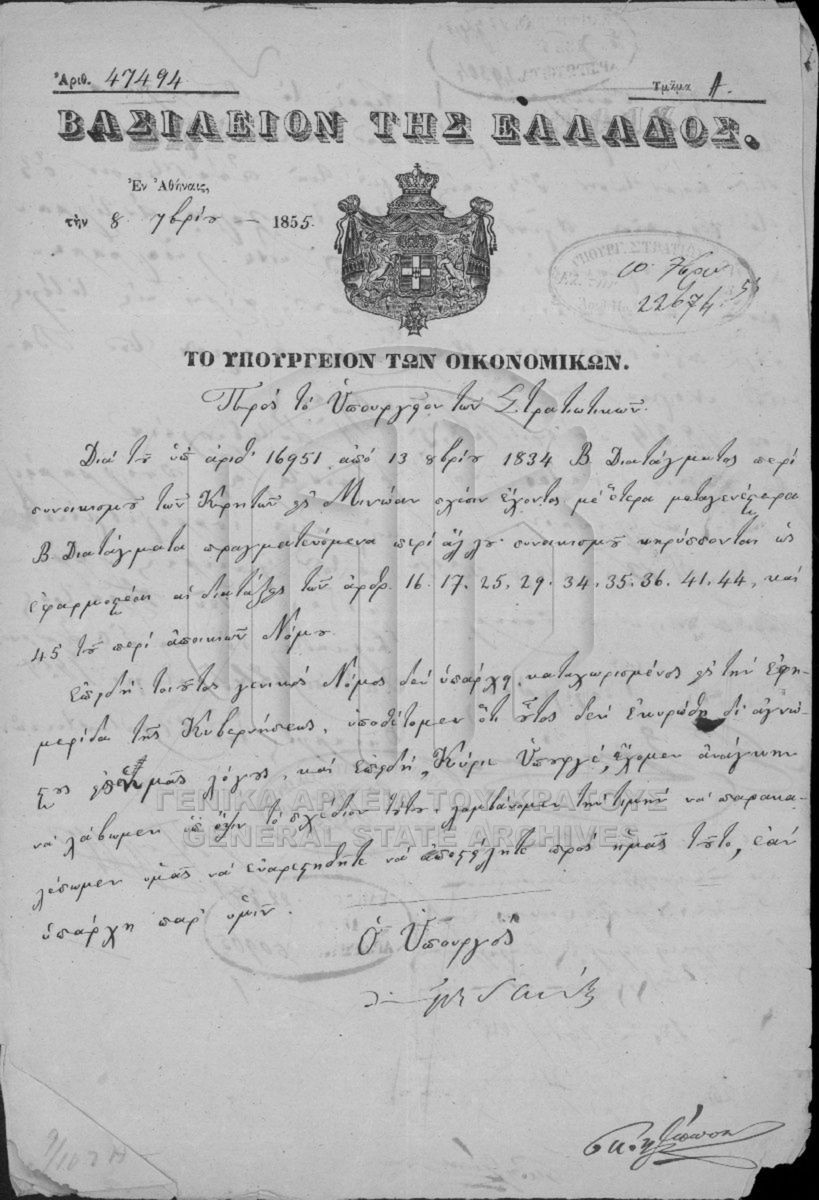 Ἀριθ. 47494
Τμῆμα Α.
ΒΑΣΙΛΕΙΟΝ ΤΗΣ ΕΛΛΑΔΟΣ.
Ἐν Ἀθήναις,
τὴν 8 7βρίου 1855.
ΥΠΟΥΡΓ. ΣΤΡΑΤΙΩ
10 7βρίου 55
22674
ΤΟ ΥΠΟΥΡΓΕΙΟΝ ΤΩΝ ΟΙΚΟΝΟΜΙΚΩΝ.
Πρὸς τὸ Ὑπουργεῖον τῶν Στρατιωτικῶν.
Διὰ τοῦ ὑπ' ἀριθ. 16951 ἀπὸ 13 8βρίου 1834 Β. Διατάγματος περὶ
συνοικισμοῦ τῶν Κρητῶν εἰς Μινώαν σχέσιν ἔχοντος μὲ ἕτερα μεταγενέστερα
Β. Διατάγματα πραγματευόμενα περὶ ἄλλου συνοικισμοῦ κηρύττονται ὡς
ἐφαρμοστέαι αἱ διατάξεις τῶν ἄρθρ. 16. 17. 25. 29. 34. 35. 36. 41. 44, καὶ
45 τοῦ περὶ ἀποικιῶν Νόμου.
Ἐπειδὴ τοιοῦτος γενικὸς Νόμος δὲν ὑπάρχει καταχωρισμένος εἰς τὴν Ἐφη-
μερίδα τῆς Κυβερνήσεως, ὑποθέτομεν ὅτι οὗτος δὲν ἐκυρώθη δι' ἀγνώ-
στους εἰς ἡμᾶς λόγους, καὶ ἐπειδή, Κύριε Ὑπουργέ, ἔχομεν ἀνάγκην
νὰ λάβωμεν ὑπ' ὄψιν τὸ σχέδιον τοῦτο, λαμβάνομεν τὴν τιμὴν νὰ παρακα-
λέσωμεν ὑμᾶς νὰ εὐαρεστηθῆτε νὰ ἀποστείλητε πρὸς ἡμᾶς τοῦτο, ἐὰν
ὑπάρχῃ παρ' ὑμῖν.
ΓΕΝΙΚΑ ΑΡΧΕΙΑ ΤΟΥ ΚΡΑΤΟΥΣ
GENERAL STATE ARCHIVES
Ὁ Ὑπουργὸς